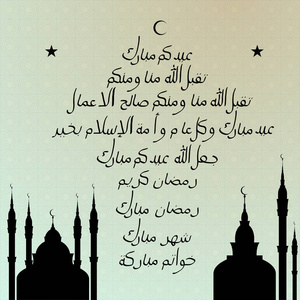 عيدكم مبارك
تقبل الله منا ومنكم
تقبل الله منا ومنكم صالح الاعمال
عيد مبارك وكل عام وأمة الإسلام بخير
جعل الله عيدكم مبارك
رمضان كريم
رمضان مبارك
شهر مبارك
خواتم مباركة